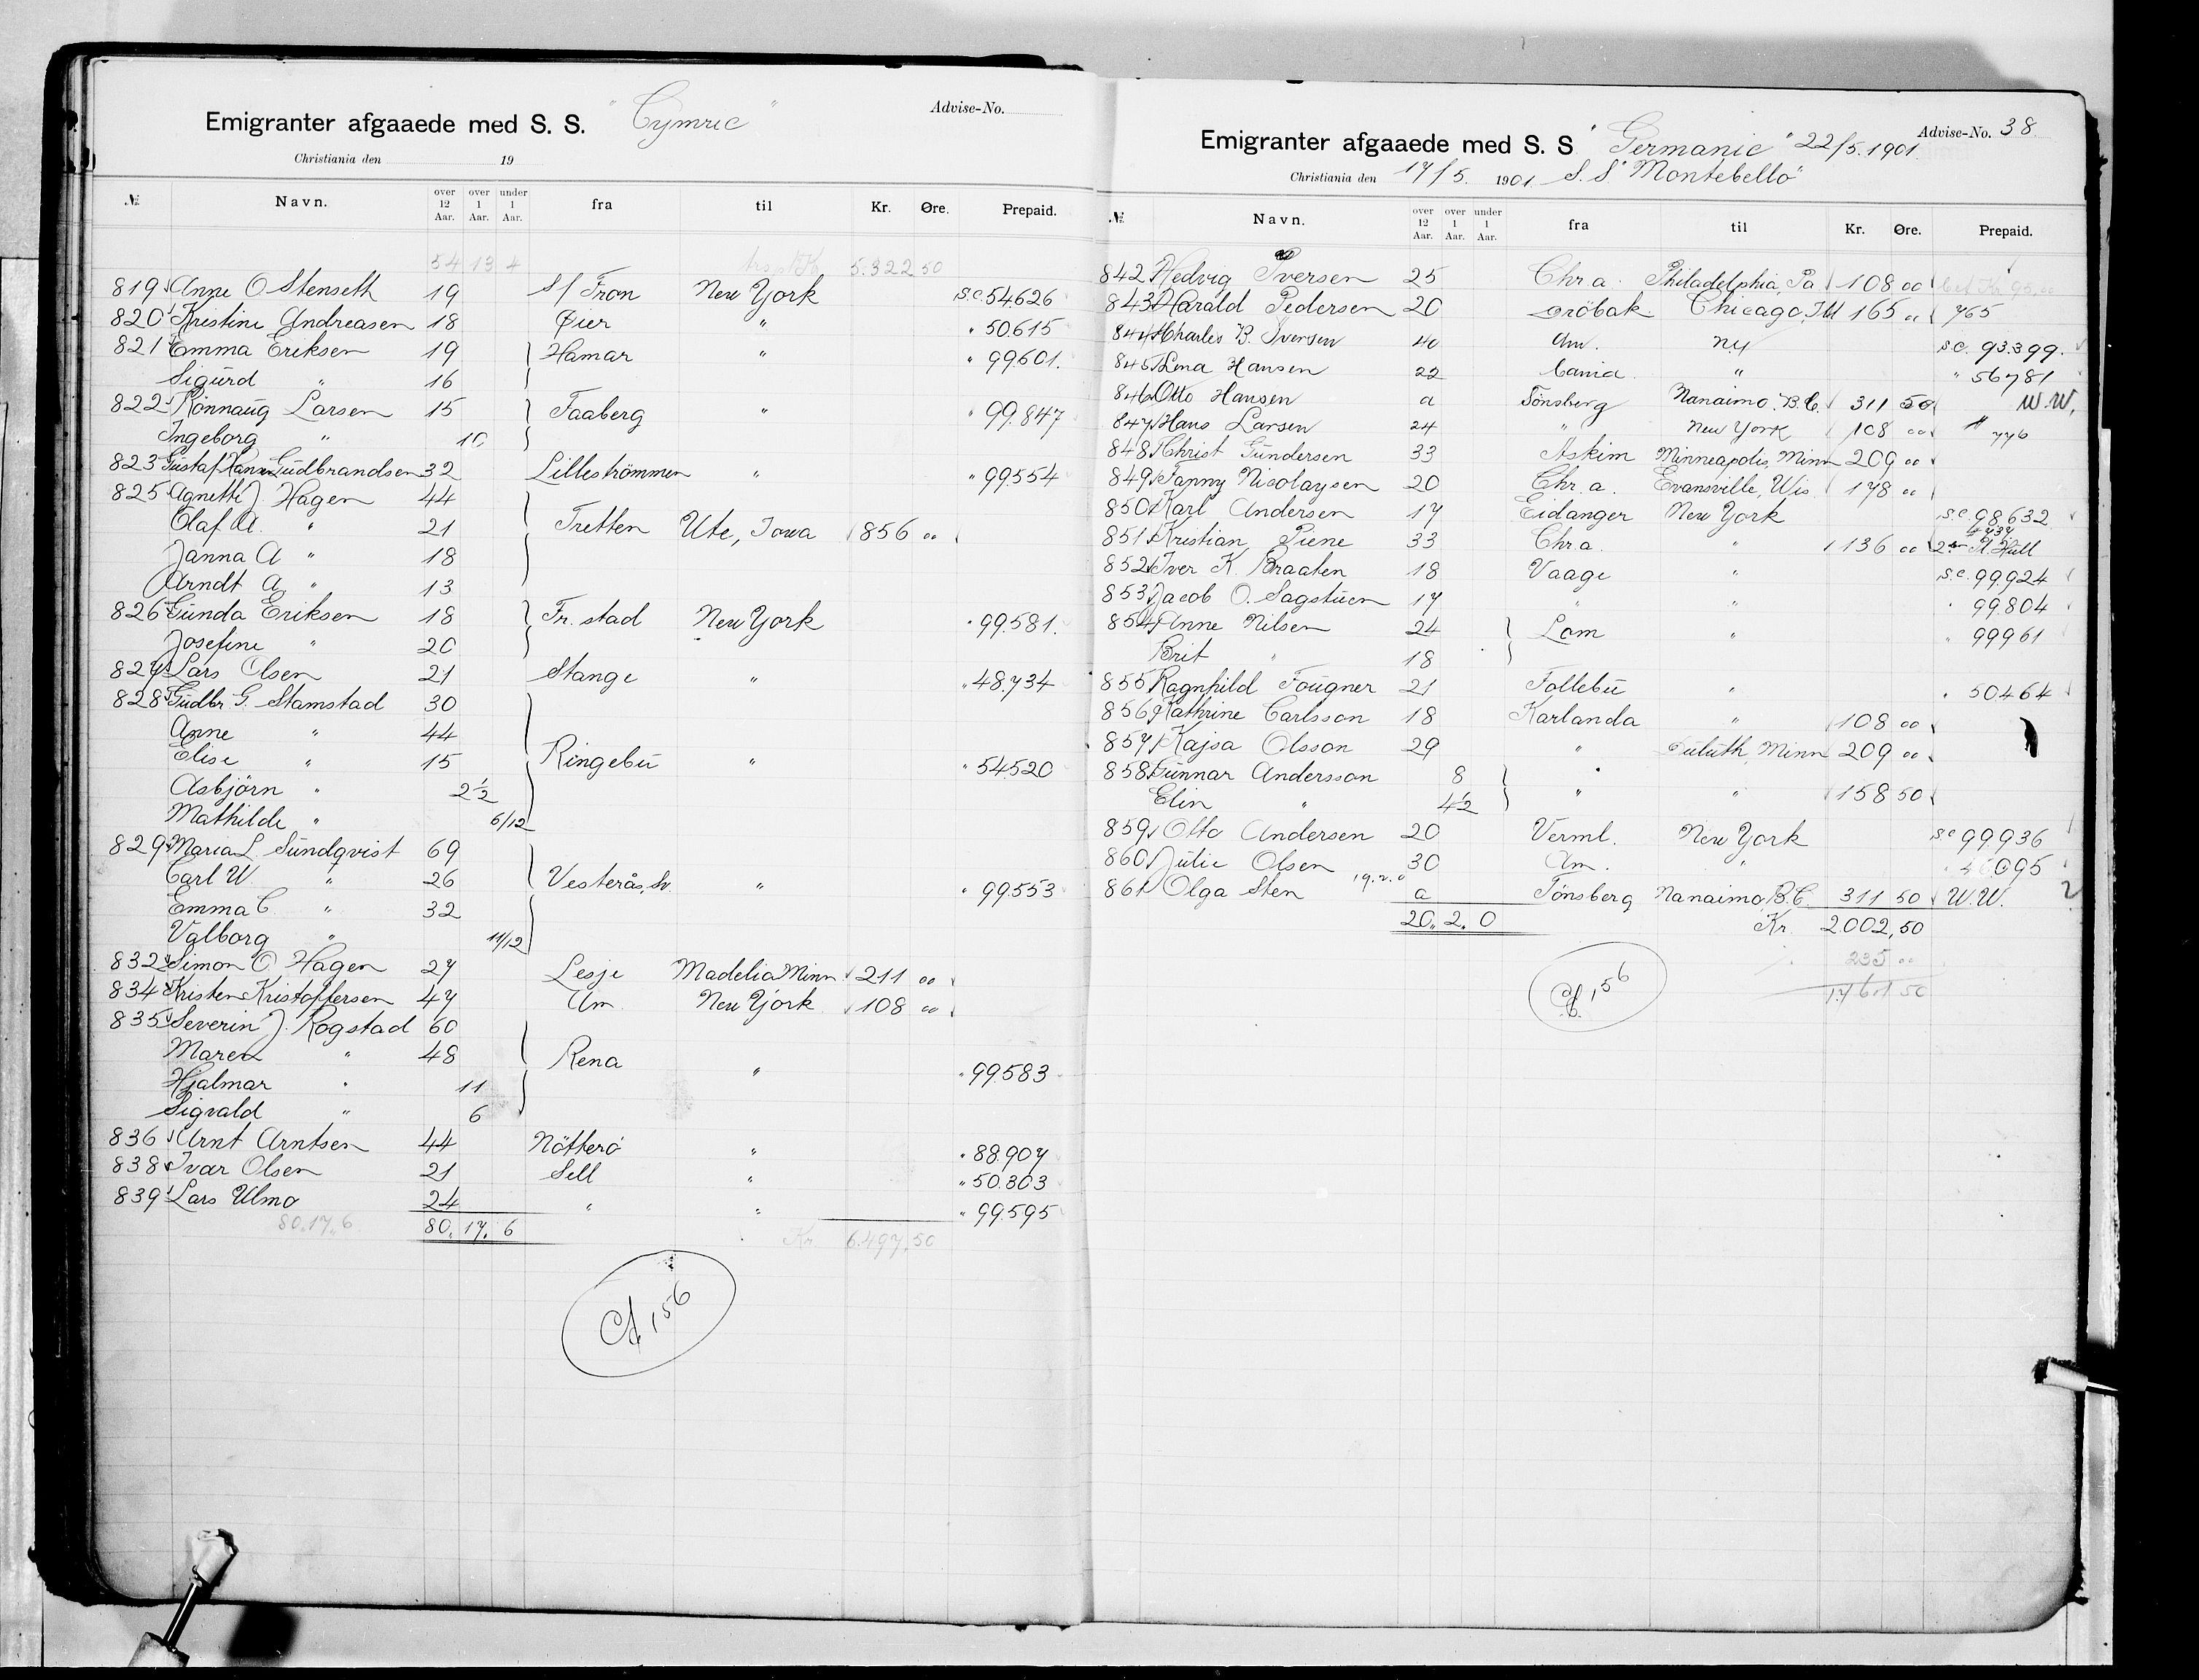 Emigranter afgaaede med S. S. "Cymric" Advise-No.
Christiania den 19
№ Navn. over 12 Aar. over 1 Aar. under 1 Aar. fra til Kr. Øre. Prepaid.
54 13 4 5.322 50
819 Anne O. Stenseth 19 S/ Fron New York S.C. 54626
820 Kristine Andreasen 18 Øier " " 50.615
821 Emma Eriksen 19 Hamar " " 99.601.
Sigurd " 16
822 Rönnaug Larsen 15 Faaberg " " 99.847
Ingeborg " 10
823 Gustaf Hans. Gudbrandsen 32 Lilleströmmen " " 99554
825 Agnethe J. Hagen 44
Olaf A. " 21 Tretten Ute, Iowa 856 00
Janna A " 18
Arndt A " 13
826 Gunda Eriksen 18 Fr. stad New York " 99.581.
Josefine " 20
827 Lars Olsen 21 Stange " " 48.734
828 Gudbr. G. Stamstad 30
Anne " 44
Elise " 15 Ringebu " " 54520
Asbjörn " 2½
Mathilde " 6/12
829 Maria L. Sundqvist 69
Carl W. " 26 Vesterås, Sv. " " 99.553
Emma C. " 32
Valborg " 11/12
832 Simon O. Hagen 27 Lesje Madelia Minn 211 00
834 Kristen Kristoffersen 47 Am. New York 108 00
835 Severin J. Rogstad 60
Maren " 48 Rena " " 99.583
Hjalmar " 11
Sigvald " 6
836 Arnt Arntsen 44 Nötterö " " 88.907
838 Ivar Olsen 21 Sell " " 50.303
839 Lars Ulmo 24 " " " 99.595
80.17.6 80. 17. 6 Kr 6.497.50
Cf. 156
Emigranter afgaaede med S. S "Germanic" 22/5. 1901. Advise-No. 38.
Christiania den 17/5. 1901. S.S "Montebello"
№ Navn. over 12 Aar. over 1 Aar. under 1 Aar. fra til Kr. Øre. Prepaid.
842 Hedvig Iversen 25 Chr.a. Philadelphia, Pa 108 00
843 Harald Pedersen 20 Dröbak Chicago, Ill 165 00 765
844 Charles B. Iversen 40 Am. N.Y. S.C. 93.399.
845 Lena Hansen 22 Xania " " 56781
846 Otto Hansen a Tönsberg Nanaimo. B.C. 311 50 W.W.
847 Hans Larsen 24 " New York 108 00 # 776
848 Christ Gundersen 33 Askim Minneapolis, Minn 209 00
849 Fanny Nicolaysen 20 Chr.a. Evansville, Wis. 178 00
850 Karl Andersen 17 Eidanger New York S.C. 98632
851 Kristian Piene 33 Chr.a. " 136 00 Hull
852 Iver K. Braaten 18 Vaage " S.C. 99.924
853 Jacob O. Sagstuen 17 " " " 99.804
854 Anne Nilsen 24 Lom " " 99961
Brit " 18
855 Ragnhild Fougner 21 Follebu " " 50464
856 Kathrine Carlsson 18 Karlanda " 108 00
857 Kajsa Olsson 29 " Duluth, Minn 209 00
858 Gunnar Andersson 8
Elin " 4½ " " 158 50
859 Otto Andersen 20 Verml. New York S.C. 99936
860 Julie Olsen 30 Am. "
861 Olga Sten 19.2.0 a Tønsberg Nanaimo, B.C. 311 50 W.W. ?
20. 2. 0 Kr. 2.002,50
235 00
1767 50
Cf. 156